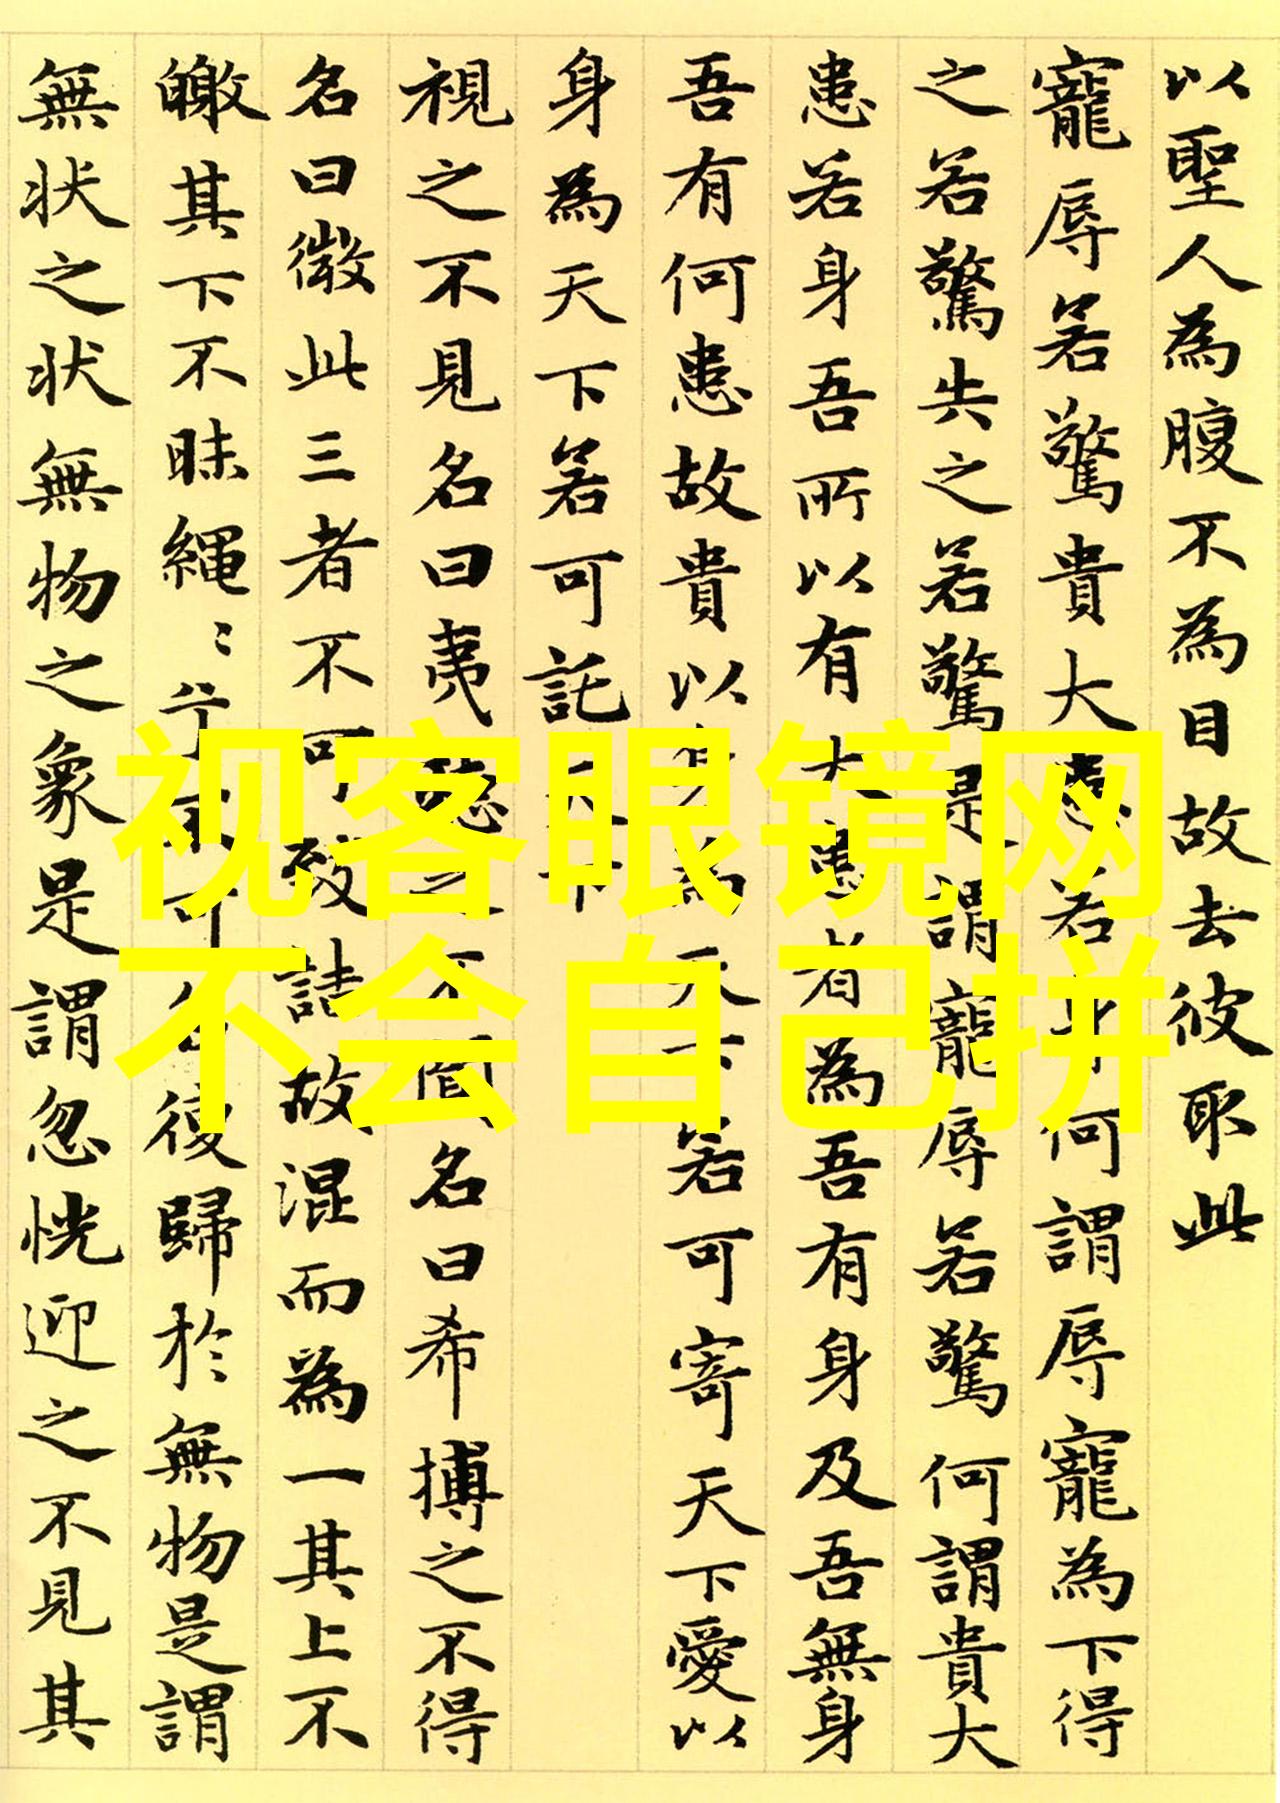 以聖人為腹不為目故去彼取此
寵辱若驚貴大患若身何謂辱寵為下得
之若驚失之若驚是謂寵辱若驚何謂貴大
患若身吾所以有大患者為吾有身及吾無身
吾有何患故貴以身為天下若可寄天下愛以
身為天下若可託天下
視之不見名曰夷聽之不聞名曰希搏之不得
名曰微此三者不可致詰故混而為一其上不
皦其下不昧繩〻兮不可名復歸於無物是謂
無状之状無物之象是謂忽恍迎之不見其
视客眼镜网
不会自己拼